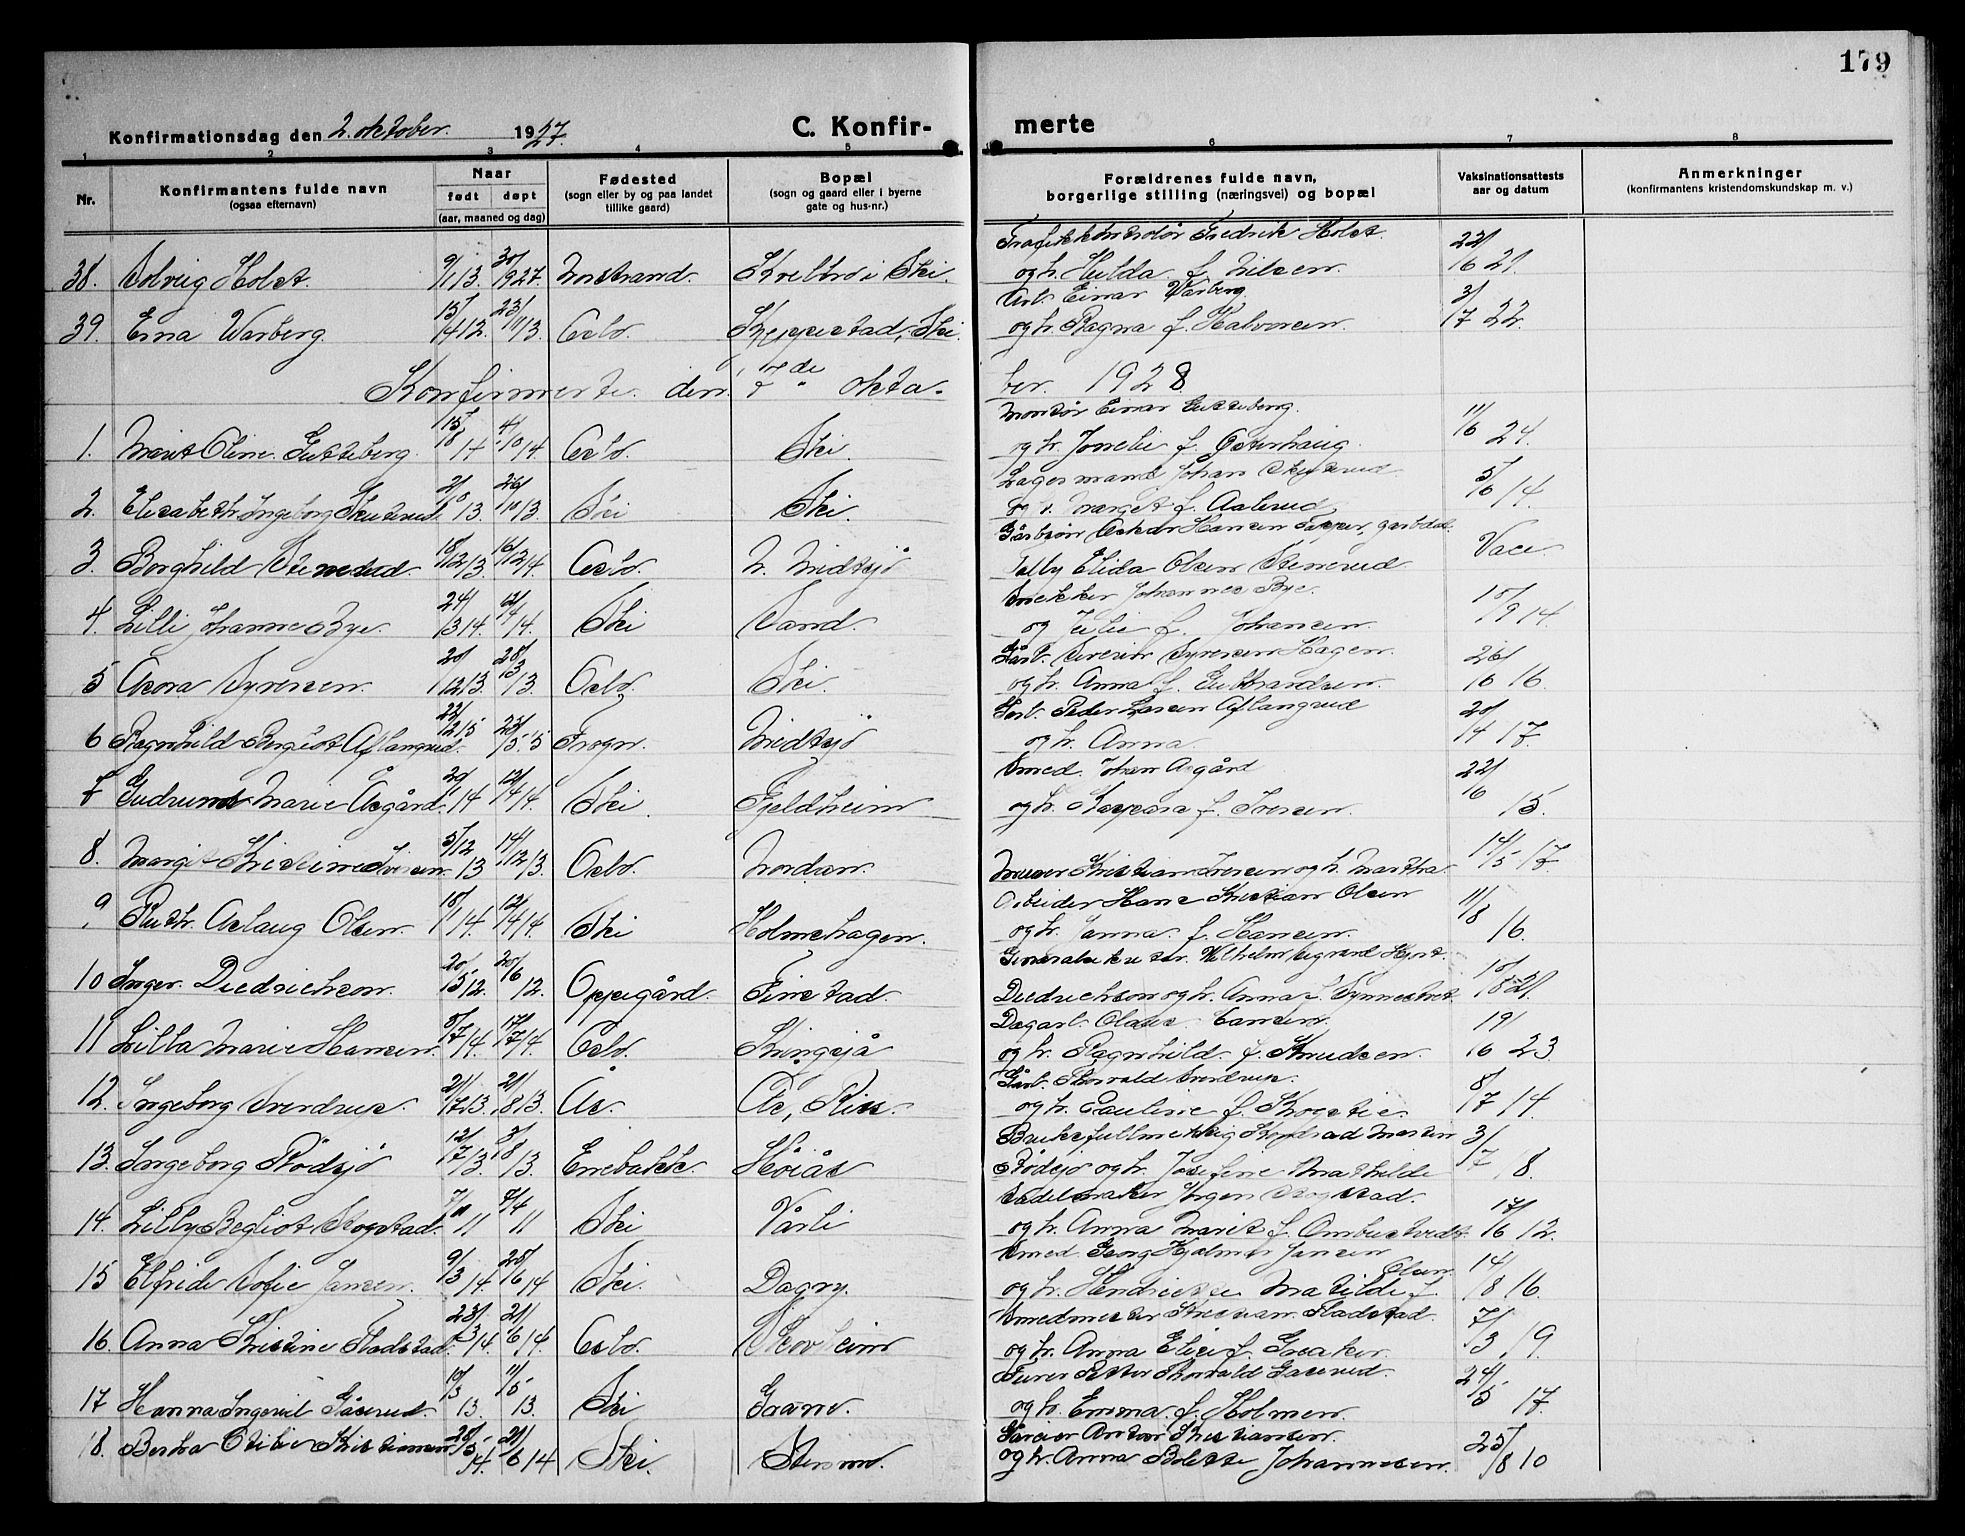 179
Konfirmationsdag den 2. oktober. 1927.
C. Konfir-
merte
1 2 3 4 5 6 7 8
Nr.
Konfirmantens fulde navn
(ogsaa efternavn)
Naar
født døpt
(aar, maaned og dag)
Fødested
(sogn eller by og paa landet
tillike gaard)
Bopæl
(sogn og gaard eller i byerne
gate og hus-nr.)
Forældrenes fulde navn,
borgerlige stilling (næringsvei) og bopæl
Vaksinationsattests
aar og datum
Anmerkninger
(konfirmantens kristendomskundskap m. v.)
38. Solveig Holst. 9/1 13. 30/9 27. Nordstrand. i Ski. Fredrik Holst.
og h. Hulda f. Nilsen. 22/6 21.
39. Erna Warberg. 15/4 12. 23/11 13. Oslo. Skeppestad, Ski. Arb. Einar Warberg
og h. Ragna f. Halvorsen. 3/7 22.
Konfirmerte den 7de okto-
ber. 1928
1. Marit Oline Gutteberg. 15/8 14 4/10 14. Oslo. Ski. Montør Einar Gutteberg.
og h. f. Østerhaug. 11/6 24.
2. Elisabeth Ingeborg Skuterud. 2/10 13. 26/10 13. Ski Ski. Lagermand Johan Skuterud
og h. Margit f. Aalerud 5/6 14.
3. Borghild Stenerud. 18/12 13. 16/12 14. Oslo. N. Midtsjø Oskar Hansen
Elida Olsen Stenerud Vacc.
4. Lilli Johanne Bye. 24/3 14. 12/4 14. Ski Sand. Snekker Johannes Bye.
og Julie f. Johansen. 10/9 14.
5 Asora Syversen. 20/12 13. Oslo. Ski. Syversen Hagen.
og h. Anna f. Guttrandsen. 26/6 16.
6 Ragnhild Bergliot Aflangrud. 22/2 15 23/5 15 Frogn. Midtsjø Peder Larsen Aflangrud
og h. Anna. 20/4 17.
7 Gudrund Marie Åsgård. 29/1 14 12/4 14. Ski. Fjeldheim Smed. Johan Asgård
og h. Kaspara f. Iversen. 22/6 15.
8. Margit Kristine Iversen. 5/12 13 14/12 13. Oslo. Nordsen. Murer Kristian Iversen og h. Martha. 14/5 17.
9. Ruth Aslaug Olsen. 18/1 14. 12/4 14. Ski Holmshagen. Arbeider Hans Kristian Olsen
og h. Janna f. Hansen. 11/8 16.
10 Inger Diedrichson. 20/5 12. 20/6 12. Oppegård. Finstad. Wilhelm Sigvard Hjort
Diedrichson og h. Anna f. Synnestvet 10/8 21.
11 Lilla Marie Hansen. 5/7 14. 17/7 14. Oslo. Kringsjå Dagarb. Olaus Hansen
og h. Ragnhild f. Knudsen. 19/6 23.
12. Ingeborg Sverdrup. 21/7 13. 21/8 13. Ås. Ås, Riis. Gårb. Thorvald Sverdrup.
og h. Pauline f. 8/7 14.
13. Ingeborg Rødsjø 12/7 13. 3/8 13. Enebakk. Høiås Bruksfullmektig Martin
Rødsjø og h. Josefine Mathilde 3/7 18.
14. Lilly Bergliot Skogstad. 7/10 11 11 Ski Vårli Sadelmaker Jørgen Skogstad.
og h. Anna Marit f. Ombustvedt. 17/6 12.
15 Elfride Sofie Jansen. 9/3 14. 28/6 14 Ski. Dagny. Smed. Georg Hjalmar Jansen
og h. Matilde f. Olsen. 14/8 16.
16. Anna Kristine Fladstad. 23/3 14. 21/6 14. Oslo. Skovheim Smedmester Kristian Fladstad.
og h. Anna Elise f. Graaker. 7/3 19.
17 Hanna Ingevil Gåserud. 10/3 13. 11/5 13. Ski Gran. Petter Thorvald Gaserud.
og h. Emma f. Holmen. 24/5 17.
18. Berha Otilie Kristiansen 28/5 14. 21/6 14 Ski. Anton Kristiansen
og h. Anna Bolette Johannesen. 25/8 10